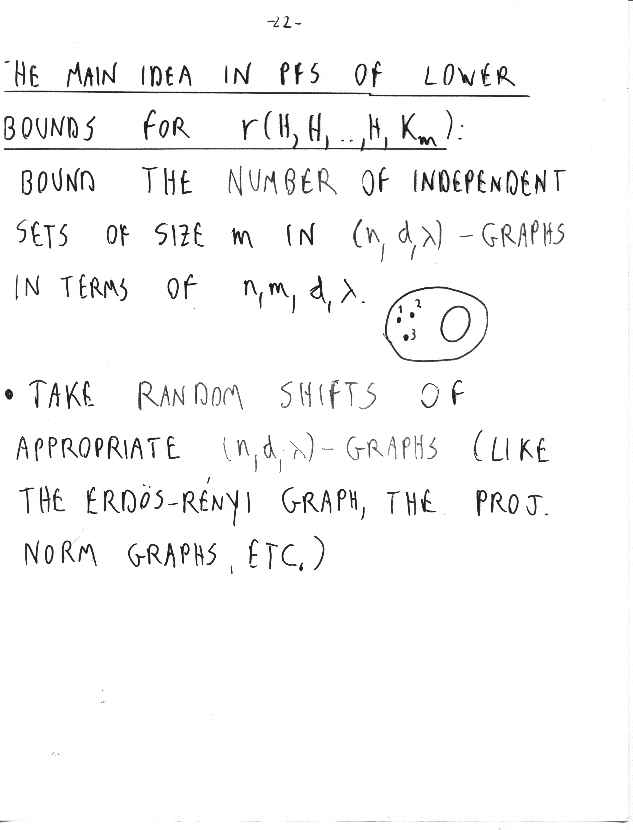 -22-
THE MAIN IDEA IN PFS OF LOWER
BOUNDS FOR r(H, H, .., H, Km):
BOUND THE NUMBER OF INDEPENDENT
SETS OF SIZE m IN (n, d, λ) - GRAPHS
IN TERMS OF n, m, d, λ.
1 2
3
• TAKE RANDOM SHIFTS OF
APPROPRIATE (n, d, λ) - GRAPHS (LIKE
THE ERDÖS-RÉNYI GRAPH, THE PROJ.
NORM GRAPHS, ETC.)